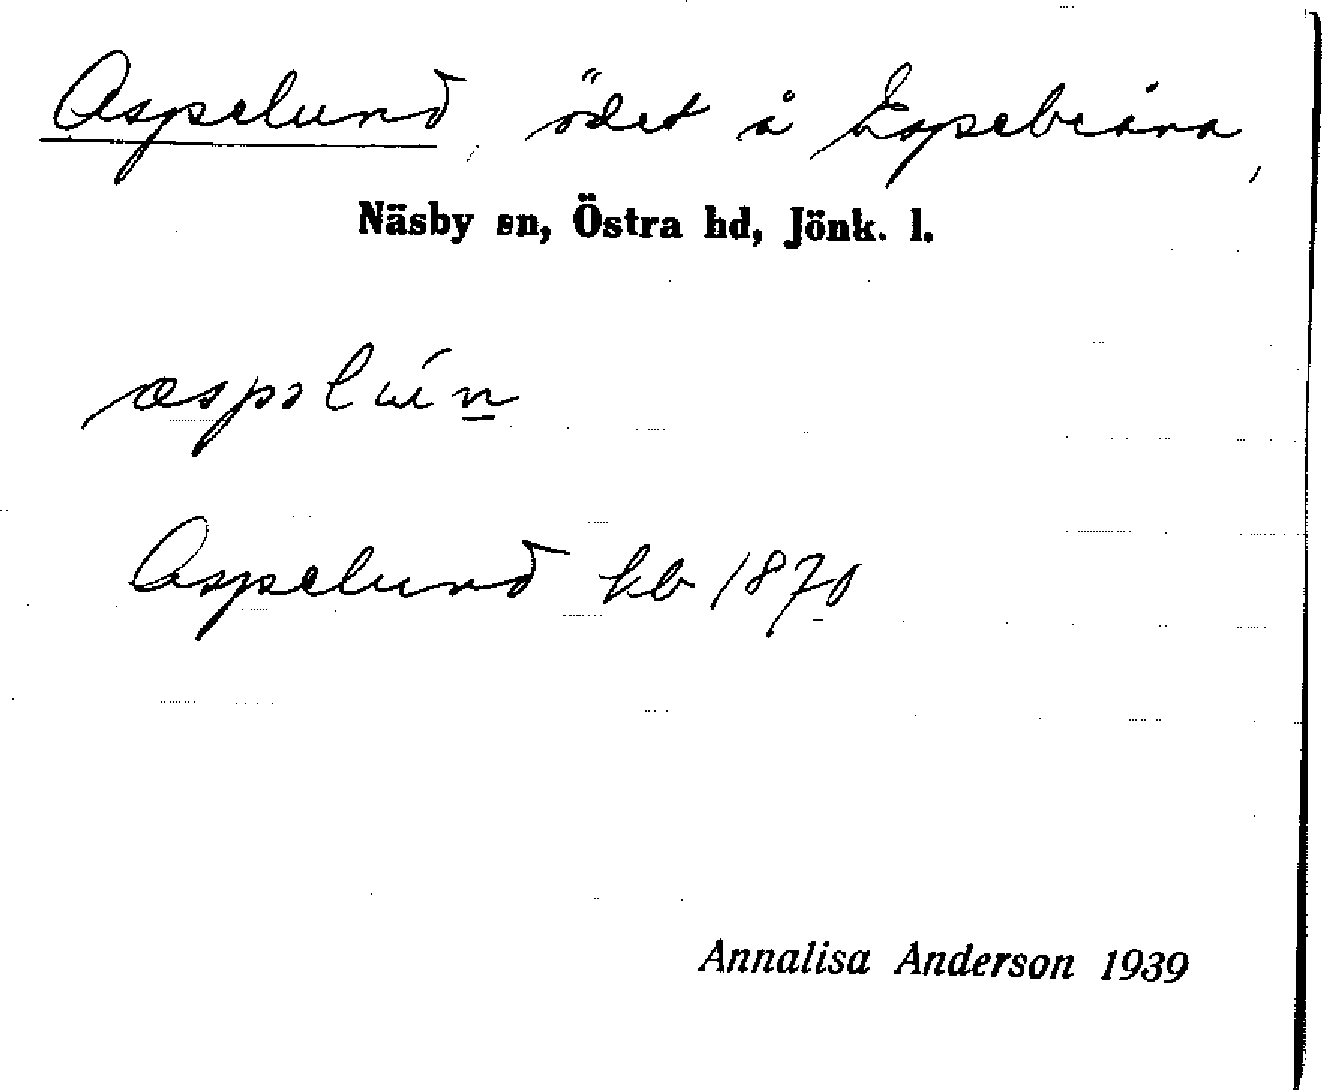 Aspelund, ödet å Espebråna,
Näsby sn, Östra hd, Jönk. l.
Aspelund kb 1870
Annalisa Anderson 1939